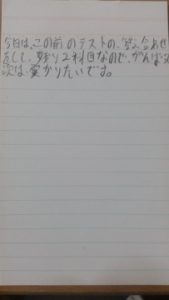 今日は、この前のテストの、答え合わせ
をして、残り2科目なので、がんばって
次は受かりたいです。